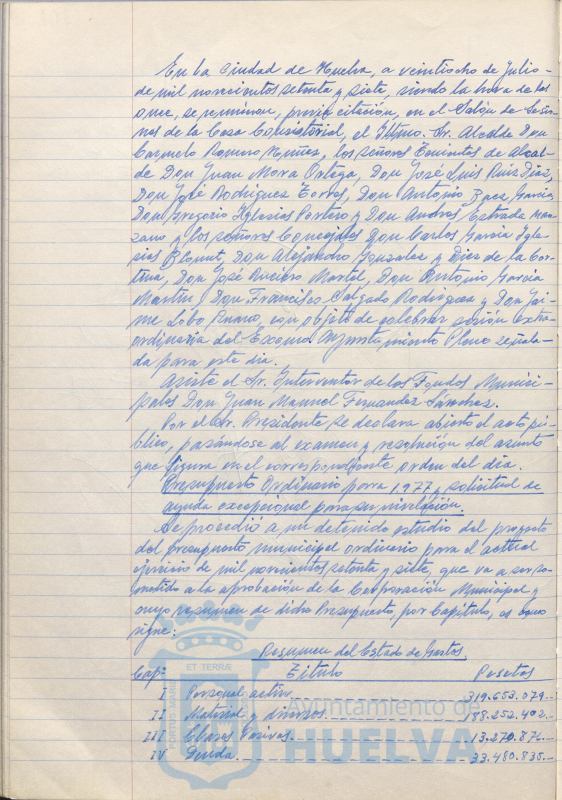 En la Ciudad de Huelva, a veintiocho de Julio
de mil novecientos setenta y siete, siendo la hora de las
once, se reunieron, previa citación, en el Salón de Sesio-
nes de la Casa Consistorial, el Iltmo. Sr. Alcalde Don
Carmelo Romero Núñez, los señores Tenientes de Alcal-
de Don Juan Mora Ortega, Don José Luis Ruiz Díaz,
Don José Rodríguez Torres, Don Antonio Baez García,
Don Gregorio Iglesias Portero y Don Andres Estrada Man-
zano y los señores Concejales Don Carlos García Igle-
sias Don Alejandro Gonzalez y Diez de la Cor-
tina, Don José Martel, Don Antonio García
Martín, Don Francisco Salgado Rodríguez y Don Jai-
me Lobo con objeto de celebrar sesión extra-
ordinaria del Excmo. Ayuntamiento Pleno señala-
da para este día.
Asiste el Sr. Interventor de los Fondos Munici-
pales Don Juan Manuel Fernandez Sánchez.
Por el Sr. Presidente se declara abierto el acto pú-
blico, pasándose al examen y resolución del asunto
que figura en el correspondiente orden del día.
Presupuesto Ordinario para 1977 y solicitud de
ayuda excepcional para su nivelación.
Se procedió a un detenido estudio del proyecto
del presupuesto municipal ordinario para el actual
ejercicio de mil novecientos setenta y siete, que va a ser so-
metido a la aprobación de la Corporación Municipal y
cuyo resumen de dicho Presupuesto, por Capítulo, es como
sigue:
Resumen del Estado de Gastos
Capº Título Pesetas
I Personal activo 319.653.079.-
II Material y diversos 188.252.402.-
III Clases Pasivas 13.270.876.-
IV Deuda 33.480.835.-
ET TERRÆ
Ayuntamiento de
HUELVA